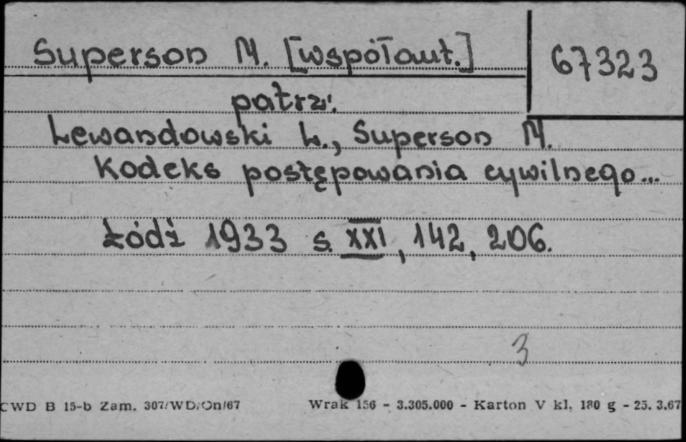 Superson M. [współaut.]
67323
patrz:
Lewandowski L., Superson M.
Kodeks postępowania cywilnego...
Łódź 1933 s. XXI, 142, 206.
3
CWD B 15-b Zam. 307/WD/On/67
Wrak 156 - 3.305.000 - Karton V kl. 180 g - 25. 3.67